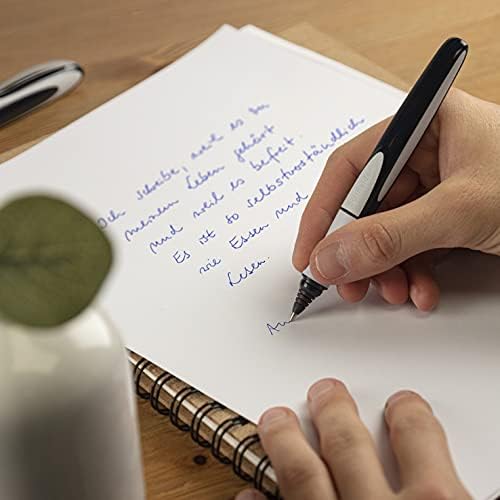 Ich schreibe, weil es zu
meinem Leben gehört
und weil es befreit.
Es ist so selbstverständlich
wie Essen und
Lesen.
Au